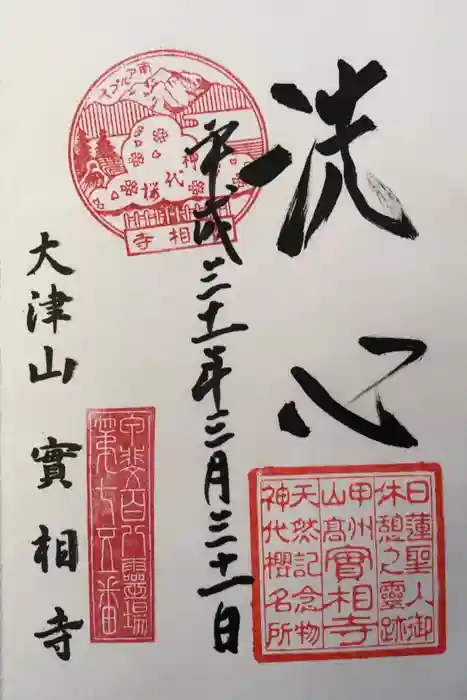 洗心
平成三十一年三月三十一日
大津山 實相寺
南アルプス
神代桜
實相寺
日蓮聖人御
休憩之靈跡
甲州
山髙實相寺
天然記念物
神代櫻名所
甲斐百八靈場